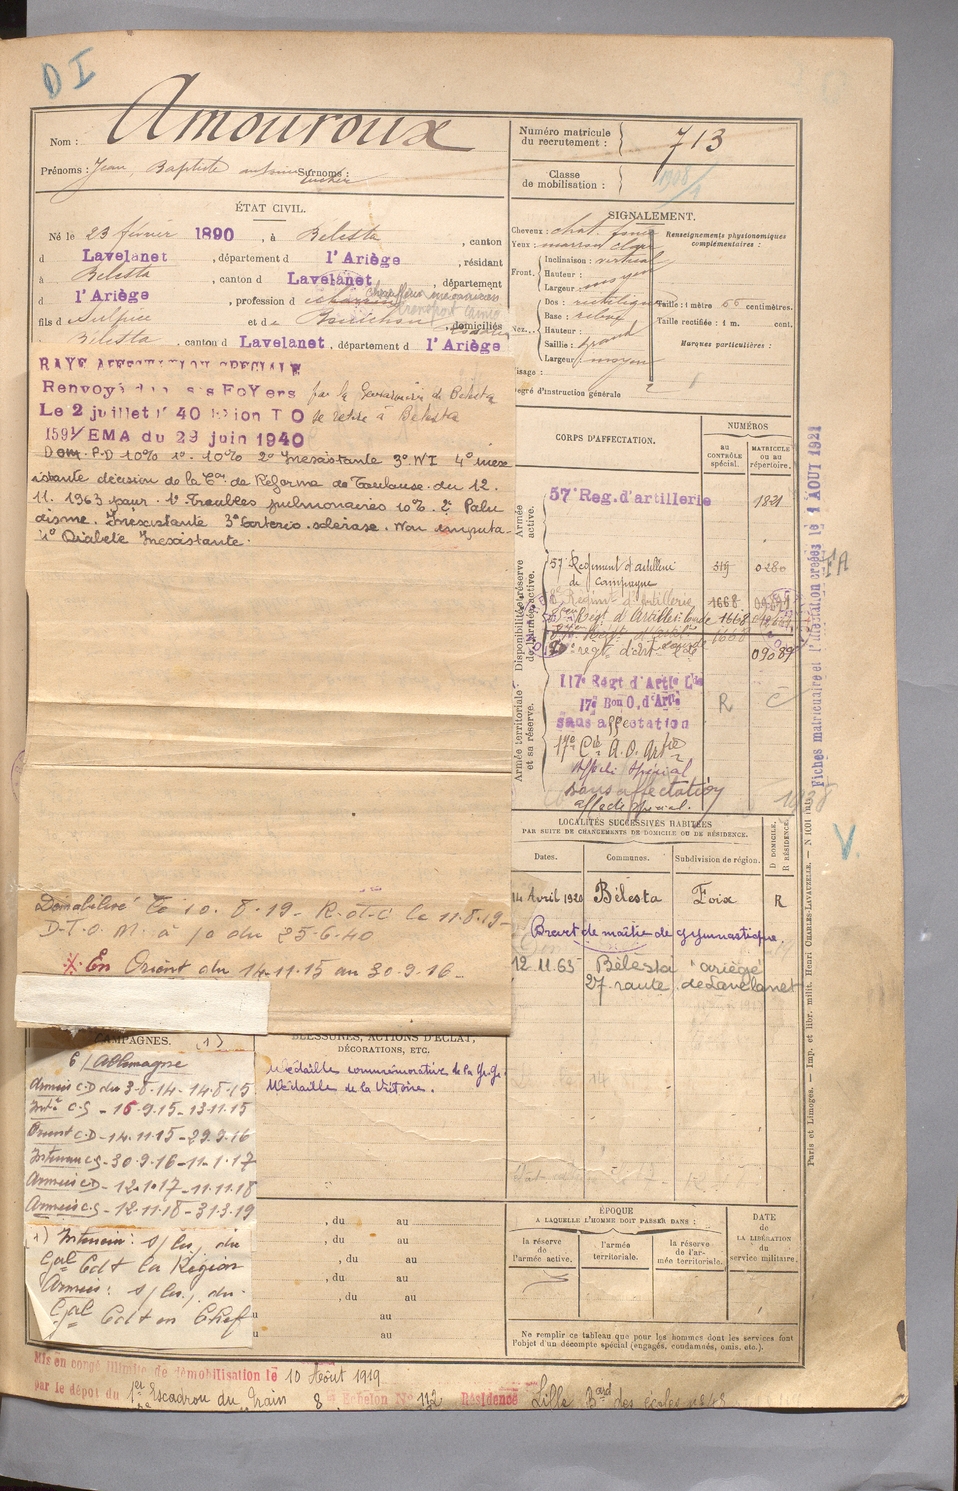 D I
Nom : Amouroux
Prénoms : Jean, Baptiste Surnoms :
Numéro matricule
du recrutement : 713
Classe
de mobilisation : 1908/1
ÉTAT CIVIL.
Né le 23 février 1890, à Belesta, canton
d Lavelanet, département d l'Ariège, résidant
à Belesta, canton d Lavelanet, département
d l'Ariège, profession d
fils d Sulpice et de domiciliés
Belesta, canton d Lavelanet, département d l'Ariège
SIGNALEMENT.
Cheveux : chat. foncé
Yeux : marron clair
Front. Inclinaison : vertical
Hauteur : moyen
Largeur : moyen
Nez. Dos : rectiligne
Base : relevé
Hauteur :
Saillie : grand
Largeur : moyen
Visage :
Degré d'instruction générale 2
Renseignements physionomiques
complémentaires :
Taille : 1 mètre 66 centimètres.
Taille rectifiée : 1 m. cent.
Marques particulières :
RAYE AFFECTATION SPECIALE
Renvoyé dans ses FoYers par la Gendarmerie de Belesta
Le 2 juillet 1940 T O se retire à Belesta
1591/EMA du 29 juin 1940
Dom. P.D 10% 1° 10% 2° Inexistante 3° N I 4° inex
istante décision de la Con de Réforme de Toulouse du 12.
11. 1963 pour. 1° Troubles pulmonaires 10%. 2° Palu
disme. Inéxistante 3° artério-sclérose. Non imputa-
4° Diabète Inexistante.
CORPS D'AFFECTATION.
NUMÉROS
au
CONTRÔLE
spécial.
MATRICULE
ou au
répertoire.
Armée
active.
57e Reg. d'artillerie 1821
Disponibilité et réserve
de l'armée active.
57e Régiment d'artillerie
de campagne 319 0280
Régiment d'artillerie 1668
Régt d'Artillerie lourde 1668
1668
regt d'art 09089
Armée territoriale
et sa réserve.
117e Régt d'Artie Lde
17e Bon O. d'Artie R C
sans affectation
17e Cie A.O. Artie
Affecté spécial
sans affectation
affecté spécial.
Fiches matriculaire et d'affectation créées le 1 AOUT 1921
FA
1938
V.
LOCALITÉS SUCCESSIVES HABITÉES
PAR SUITE DE CHANGEMENTS DE DOMICILE OU DE RÉSIDENCE.
Dates. Communes. Subdivision de région. D DOMICILE. R RÉSIDENCE.
14 Avril 1920 Bélesta Foix R
Brevet de maître de gymnastique.
12.11.65 Bélesta "ariège"
27 route de Lavelanet
Démobilisé le 10.8.19 - R.d.C le 11.8.19-
D.T.O. M. à /o du 25-6-40
En Orient du 14-11-15 au 30-9-16-
CAMPAGNES. (1)
C/ Allemagne
Armées C.D du 3-8-14 - 14-8-15
Intr C.S - 16-9-15 - 13-11-15
Orient C.D - 14-11-15 - 29-9-16
Intérieur C.S - 30-9-16 - 11-1-17
Armées C.D - 12-1-17 - 11-11-18
Armées C.S - 12-11-18 - 31-3-19
(1) Intérieur : du
Gal Cdt la Région
Armées : du
Gal Cdt en Chef
BLESSURES, ACTIONS D'ÉCLAT,
DÉCORATIONS, ETC.
Médaille commémorative de la Gr. Gre
Médaille de la Victoire.
, du au
, du au
, du au
, du au
, du au
au
au
ÉPOQUE
A LAQUELLE L'HOMME DOIT PASSER DANS :
la réserve
de
l'armée active.
l'armée
territoriale.
la réserve
de l'ar-
mée territoriale.
DATE
de
la LIBÉRATION
du
service militaire.
Ne remplir ce tableau que pour les hommes dont les services font
l'objet d'un décompte spécial (engagés, condamnés, omis, etc.).
Paris et Limoges. — Imp. et libr. milit. Henri CHARLES-LAVAUZELLE.
Mis en congé illimité de démobilisation le 10 Août 1919
par le dépot du 1er Escadron du Train 8e Echelon N° 112 Résidence Lille Bard des écoles